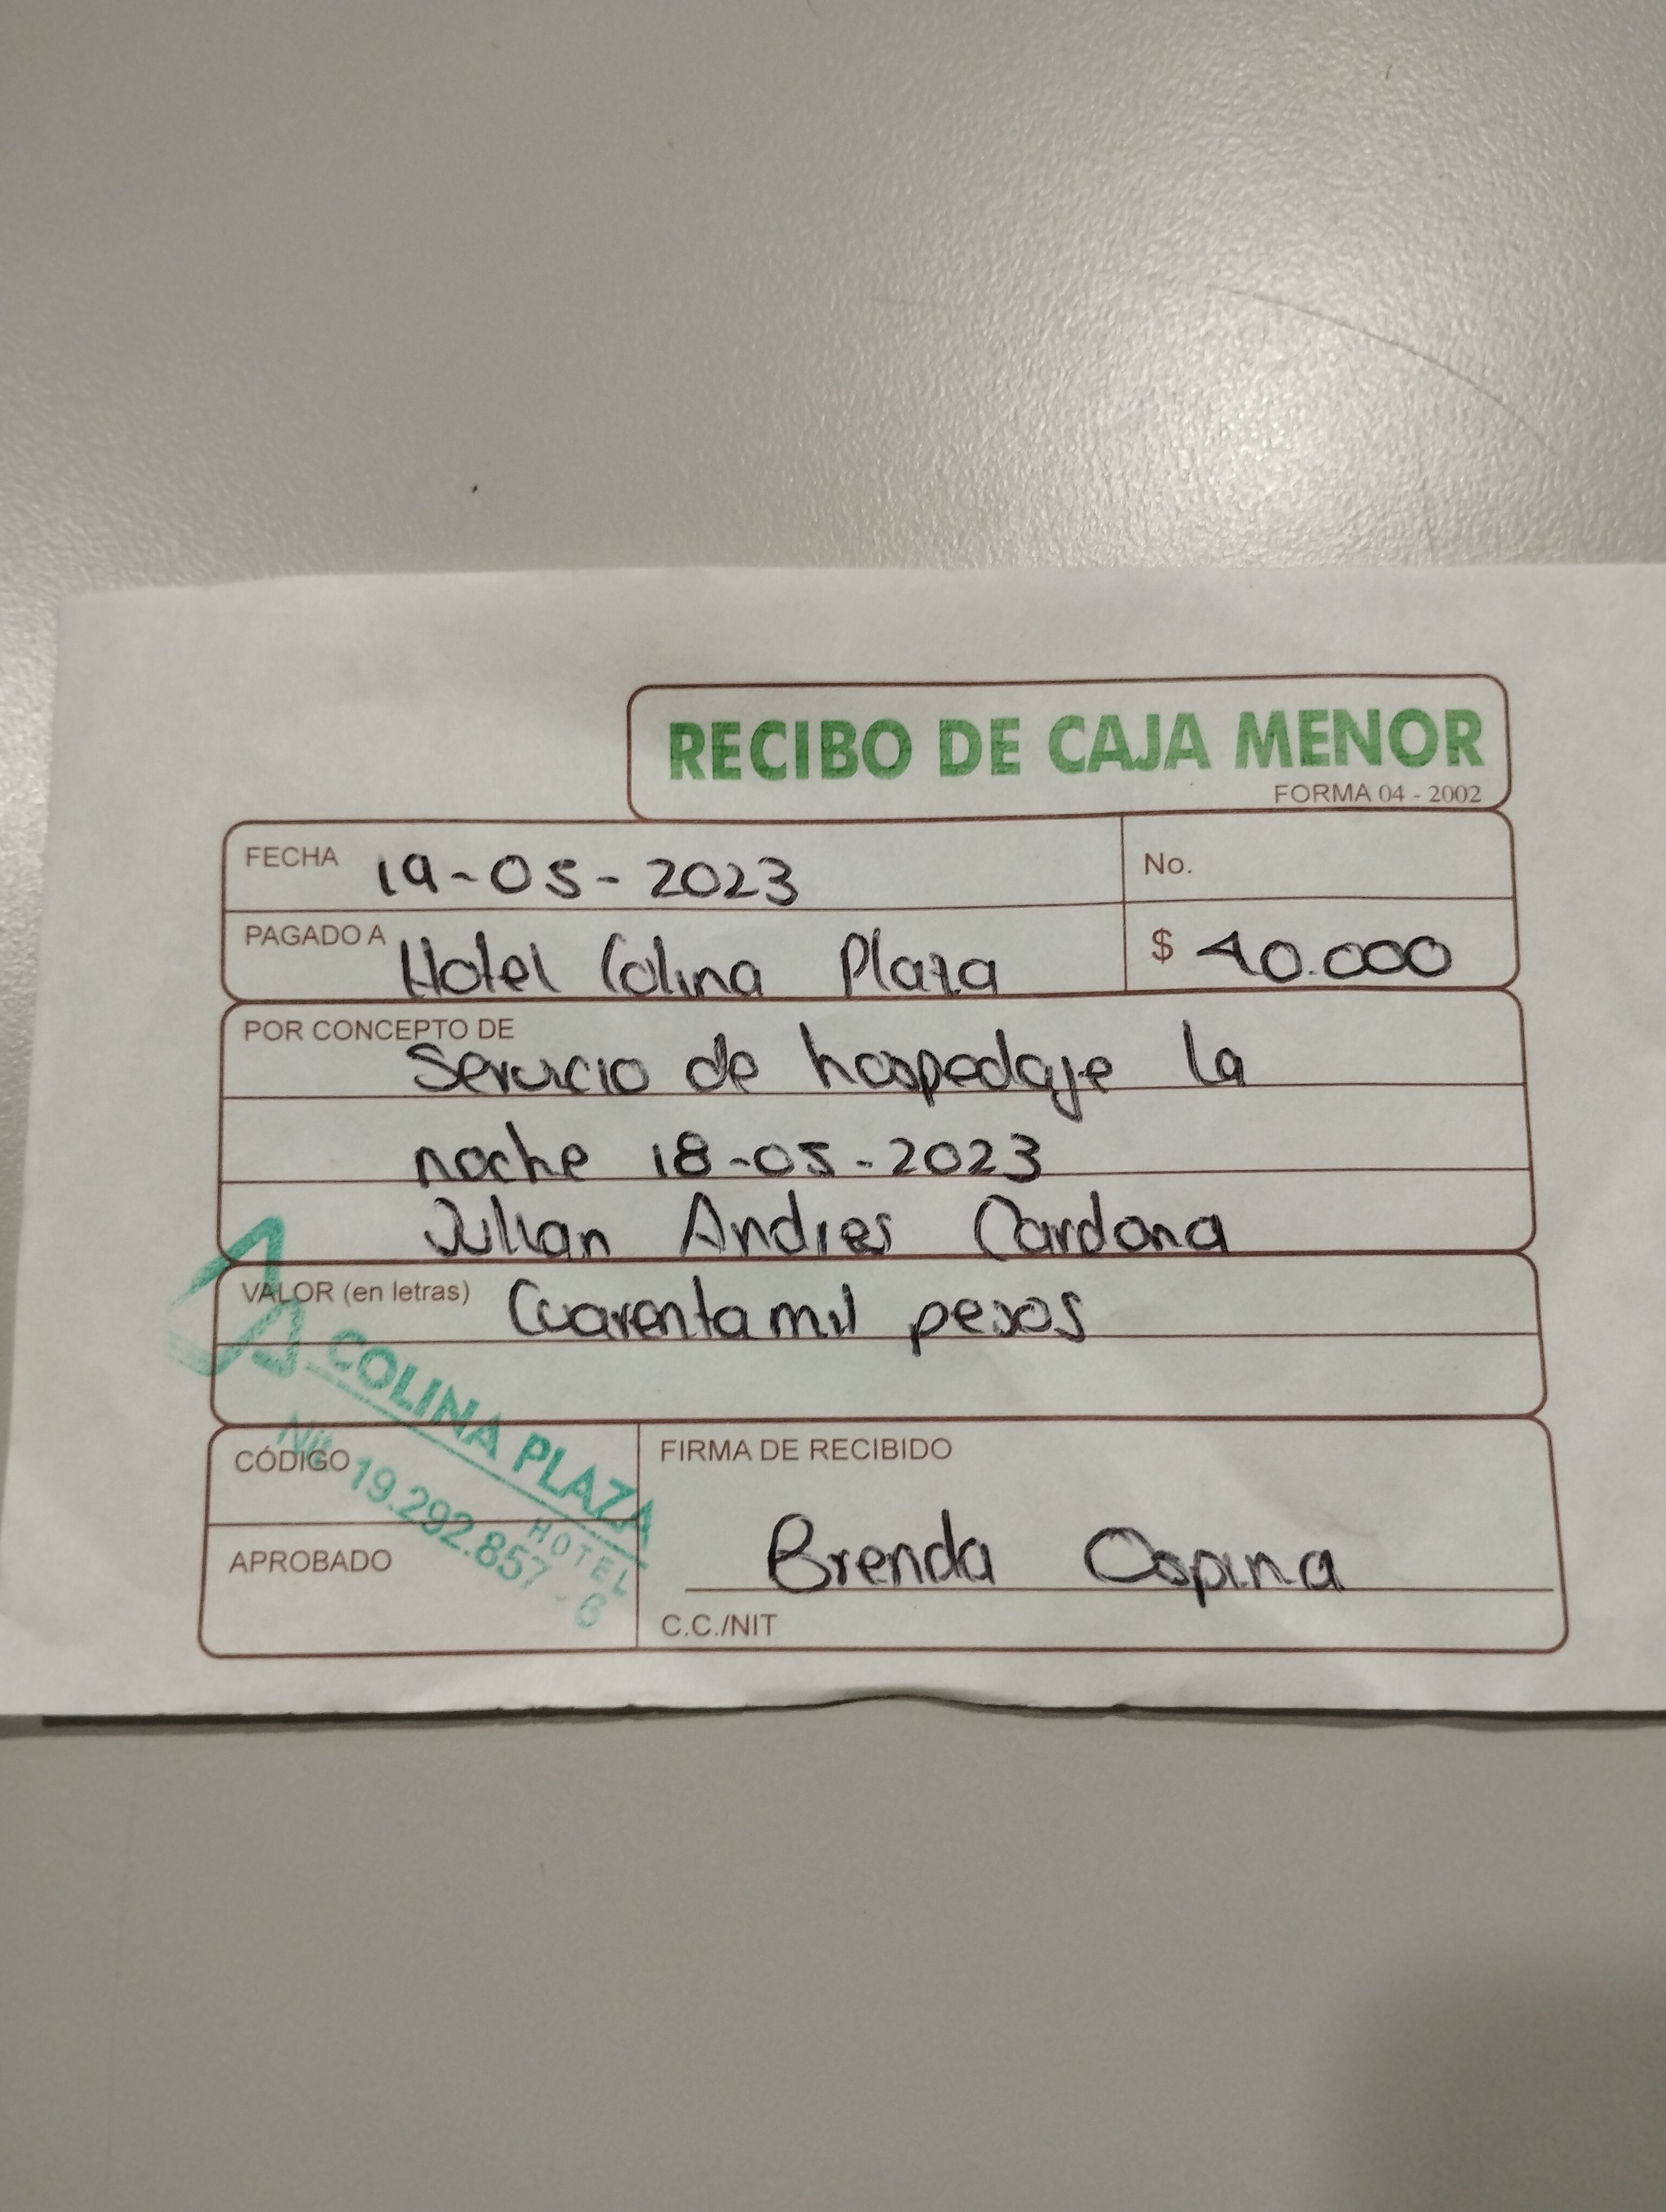 RECIBO DE CAJA MENOR
FORMA 04 - 2002
FECHA 19-05-2023
No.
PAGADO A Hotel Colina Plaza
$ 40.000
POR CONCEPTO DE
Servicio de hospedaje la
noche 18-05-2023
Julian Andres Cardona
VALOR (en letras) Cuarenta mil pesos
COLINA PLAZA
HOTEL
Nit. 19.292.857 - 6
CÓDIGO
APROBADO
FIRMA DE RECIBIDO
Brenda Ospina
C.C./NIT